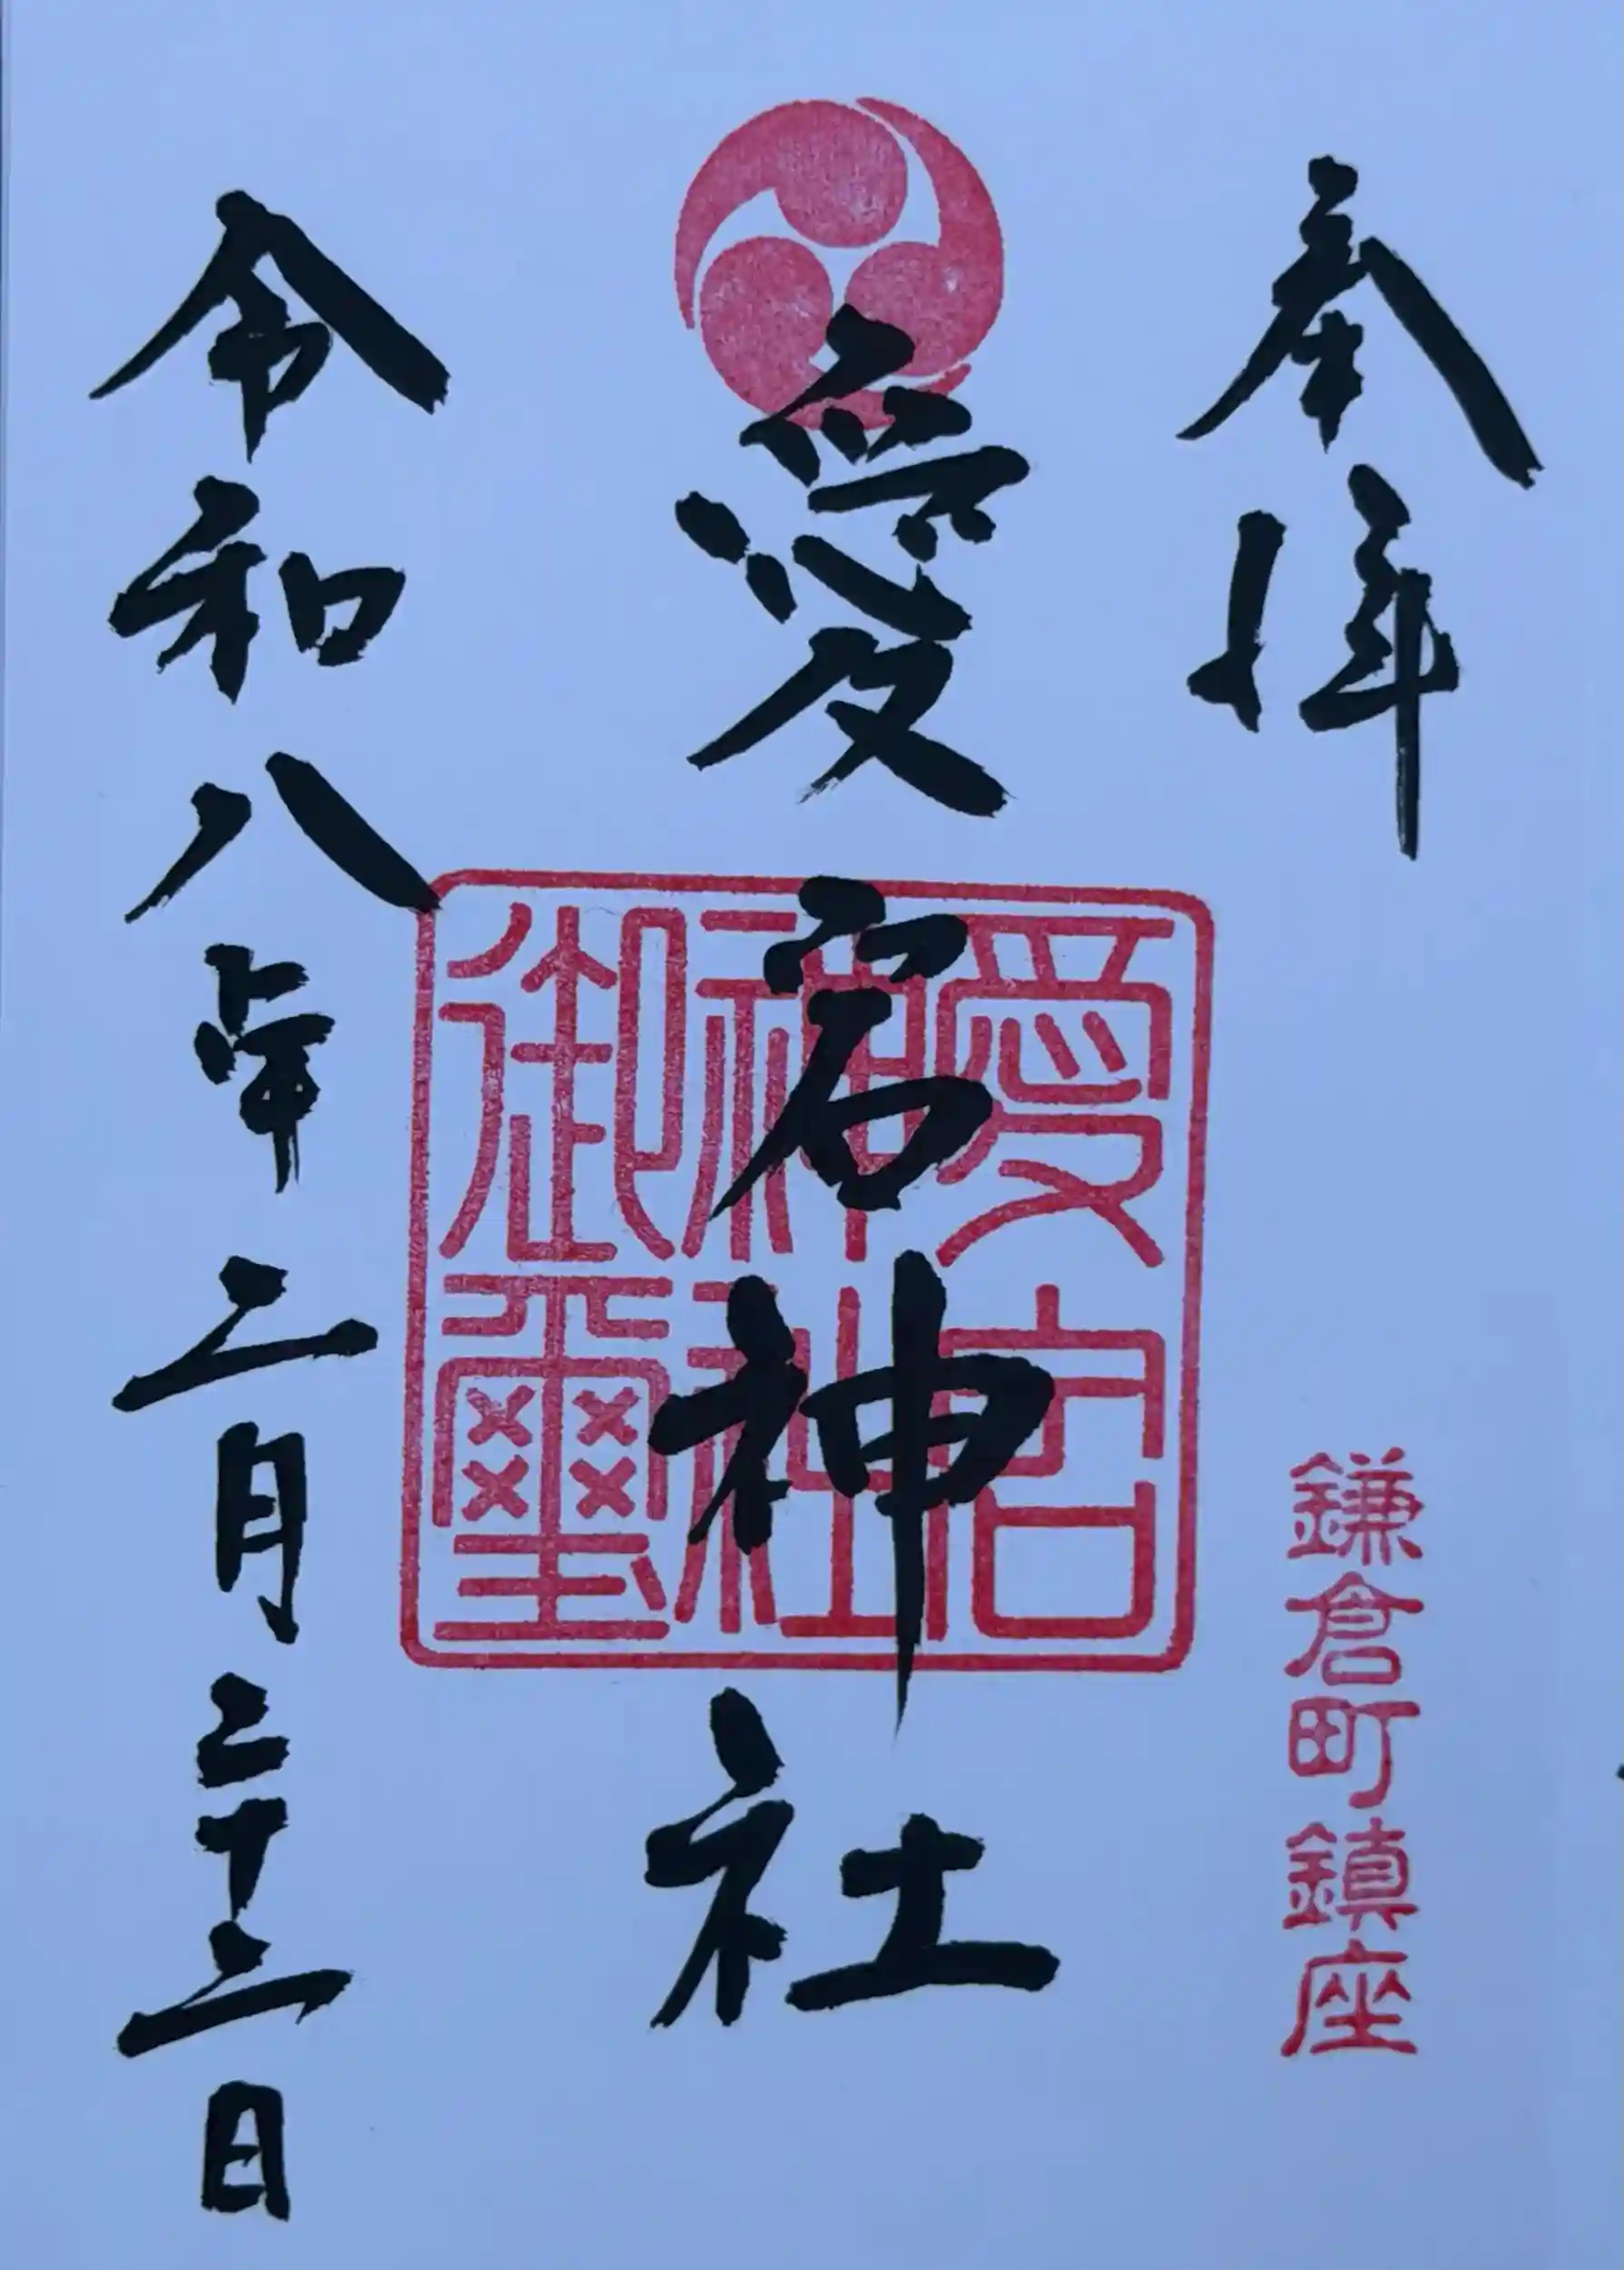 奉拝
鎌倉町鎮座
愛宕神社
愛宕
神社
御璽
令和八年二月二十二日